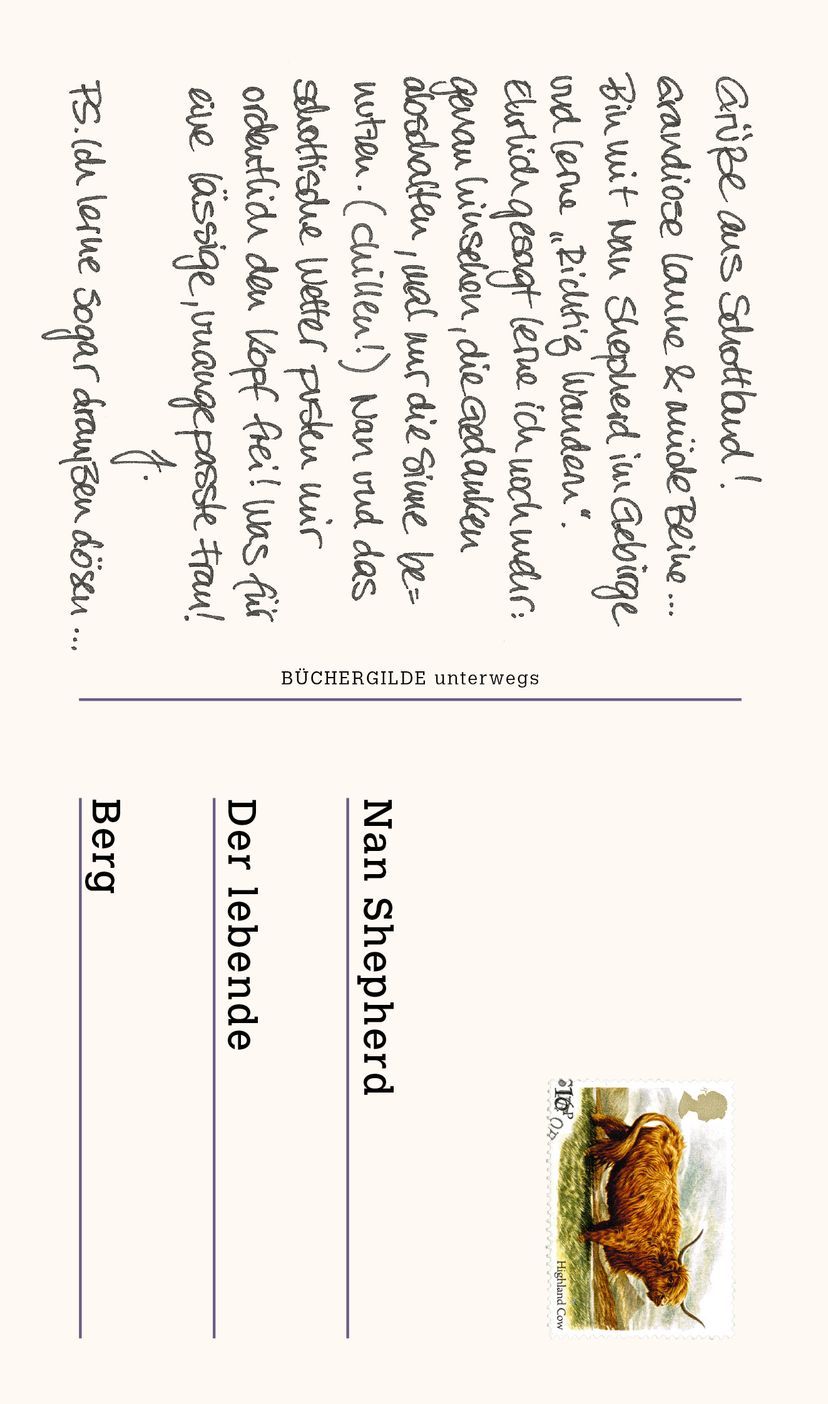 Grüße aus Schottland!
Grandiose Laune & müde Beine...
Bin mit Nan Shepherd im Gebirge
und lerne „Richtig Wandern“.
Ehrlich gesagt lerne ich noch mehr:
genau hinsehen, die Gedanken
abschalten, mal nur die Sinne be=
nutzen. (Chillen!) Nan und das
schottische Wetter pusten mir
ordentlich den Kopf frei! Was für
eine lässige, unangepasste Frau!
J.
PS. Ich lerne sogar draußen dösen...
BÜCHERGILDE unterwegs
Nan Shepherd
Der lebende
Berg
Highland Cow